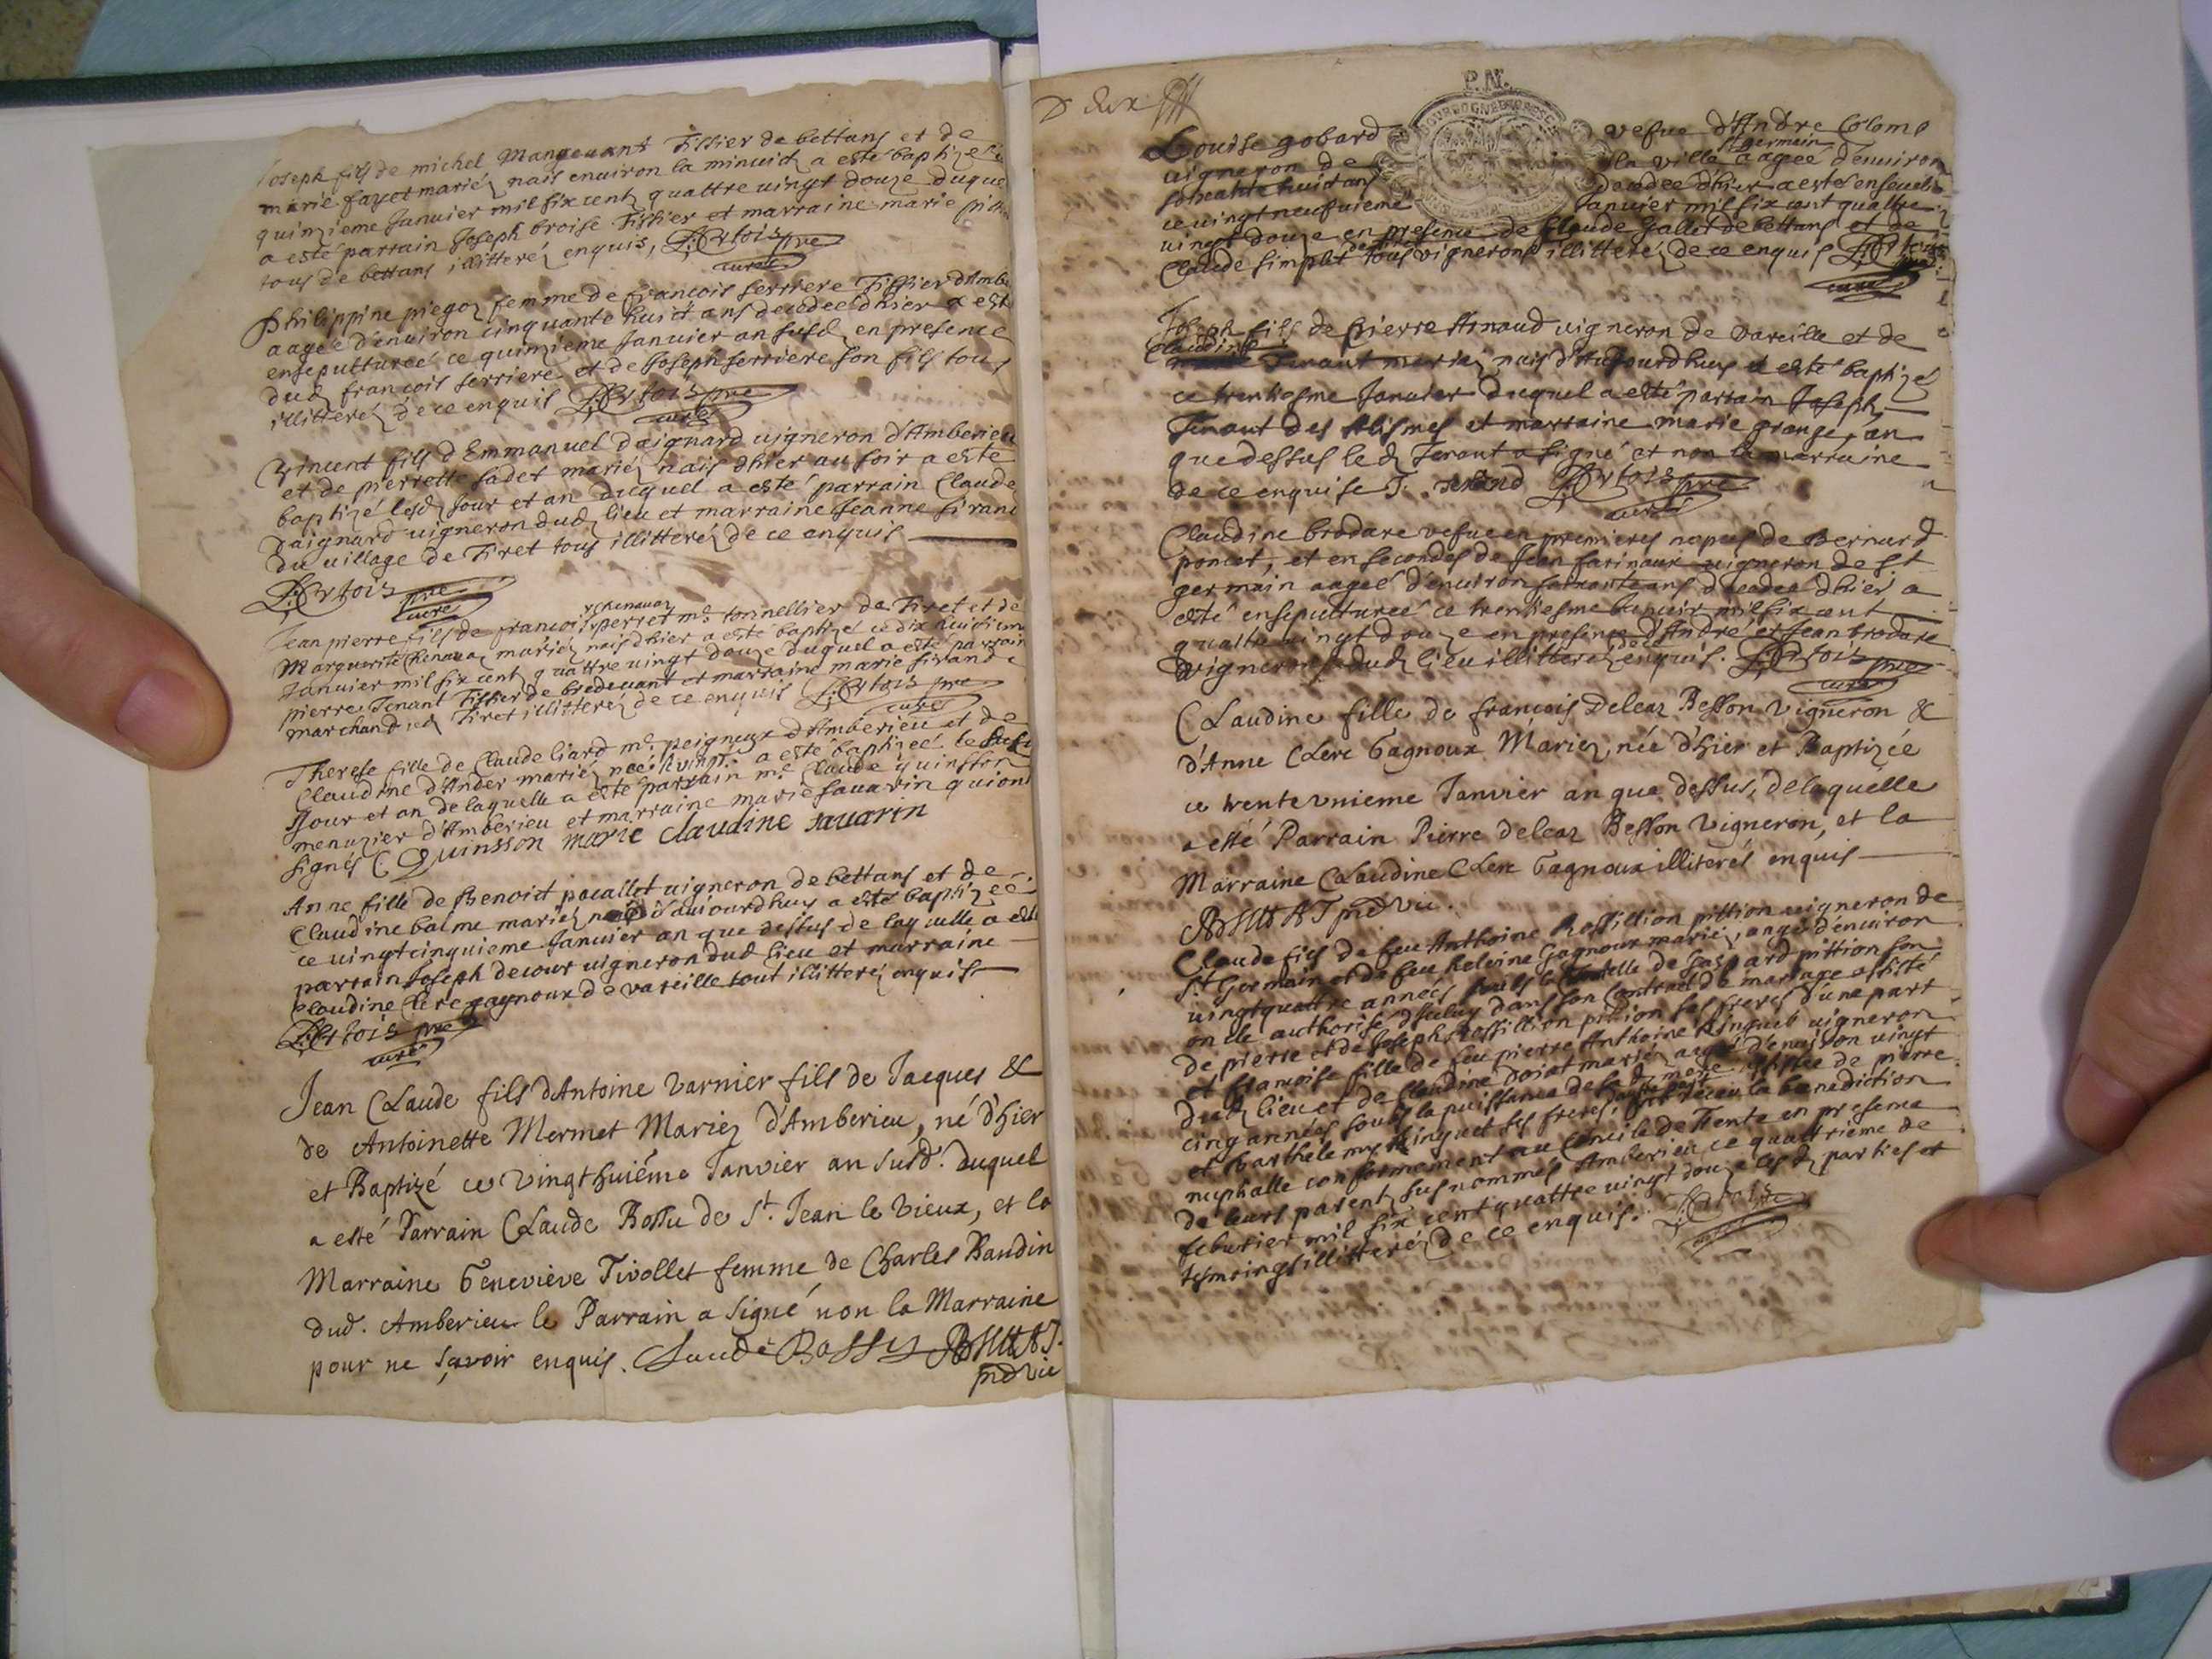 Joseph fils de michel Mangeuant Tissier de bettans et de
marie fayet mariéz nais enuiron la minuict a esté baptizé ce
quinzieme Januier mil six centz quattre vingt douze duquel
a esté parrain Joseph broise Tissier et marraine marie
tous de bettans illitteréz enquis, Ertois pre
curé
Philippine piegoz femme de francois serriere Tissier d'Ambe
aagée d'enuiron cinquante huict ans decedee dhier a esté
enseputturee ce quinzieme Januier an susd en presence
dud francois serriere et de Joseph serriere son fils tous
illitteréz de ce enquis Ertois pre
curé
Vincent fils d'Emmanuel daignard uigneron d'Amberieu
et de pierrette sadet mariéz nais dhier au soir a esté
baptizé lesd Jour et an duquel a esté parrain Claude
daignard uigneron dud lieu et marraine Jeanne sirand
du uillage de Tiret tous illitteréz de ce enquis
Ertois pre
curé
Jean pierre fils de francois perret me tonnellier de Tiret et de
Marguerite chenauaz mariéz nais dhier a esté baptizé ce dix neuuieme
Januier mil six centz quattre vingt douze duquel a esté parrain
pierre Tenant Tissier de bredeuant et marraine marie sirande
marchand dud Tiret illitteréz de ce enquis Ertois pre
curé
Therese fille de Claude liard me peigneur d'Amberieu et de
Claudine d'Ander mariéz née a esté baptizeé le susd
Jour et an de laquelle a esté parrain me Claude quinsson
menuzier d'Amberieu et marraine marie sauarin qui ont
signés C Quinsson marie claudine sauarin
Anne fille de Benoict pacallet uigneron de bettans et de
Claudine balme mariéz née d'auiourdhuy a esté baptizeé
ce uingtcinquieme Januier an que dessus de laquelle a esté
parrain Joseph decour uigneron dud lieu et marraine
Claudine Clerc gagnoux de vareille tout illitteréz enquis
Ertois pre
curé
Jean Claude fils d'Antoine Varnier fils de Jacques &
de Antoinette Mermet Mariez d'Amberieu, né d'hier
et Baptizé ce Vingthuiéme Janvier an susd. duquel
a esté Parrain Claude Bossu de St. Jean le Vieux, et la
Marraine Geneviève Tivollet femme de Charles Baudin
dud. Amberieu le Parrain a signé non la Marraine
pour ne sçavoir enquis. Claude Bossu
D deux
P. N.
Louise gobard vefue d'Andre Colomb
uigneron de St germain la ville aagée d'enuiron
soixante huict ans decedee d'hier a esté enseuelie
ce uingtneufuieme Januier mil six cent quattre
uingt douze en presence de Claude Gallet de bettans et de
Claude simplet tous uignerons illitteréz de ce enquis Ertois
curé
Joseph fils de pierre Arnaud uigneron de vareille et de
Claudine Tenant mariéz nais d'Auiourdhuy a esté baptizé
ce trentiesme Januier duquel a esté parrain Joseph
Tenant des Alismes et marraine marie grange, an
que dessus led Tenant a signé et non la marraine
de ce enquise J. tenand Ertois pre
curé
Claudine brodare vefue en premieres nopces de Bernard
poncet, et en secondes de Jean farinaux uigneron de St
germain aageé d'enuiron soixante ans decedee dhier a
esté ensepultureé ce trentiesme Januier mil six cent
quattre uingt douze en presence d'André et Jean brodare
Vignerons dud lieu illitteréz de ce enquis. Ertois pre
curé
Claudine fille de francois Deleaz Besson Vigneron &
d'Anne Clerc Gagnoux Mariez, née d'hier et Baptizée
ce trente unieme Janvier an que dessus, de laquelle
a esté Parrain Pierre deleaz Besson Vigneron, et la
Marraine Claudine Clerc Gagnoux illiterés enquis
Claude fils de feu Anthoine Rossillion pittion uigneron de
St Germain et de feu heleine Gagnoux mariéz, aagé d'enuiron
uingtquattre années soubs la tutelle de Gaspard pittion son
oncle authorisé d'celuy dans son contract de mariage assisté
de pierre et de Joseph Rossillion pittion ses freres d'une part
et francoise fille de feu pierre Anthoine Ringuet uigneron
dud lieu et de Claudine Doiat mariéz aageé d'enuiron uingt
cinq années soubs la puissance de sad mere assistée de pierre
et Barthelemy Ringuet ses freres, d'autre part ont receu la benediction
nuphalle conformement au Concile de Trente en presence
de leurs parents susnommés Amberieu ce quattrieme de
feburier mil six cent quattre uingt douze lesd parties et
tesmoings illitteréz de ce enquis. Ertois pre
curé